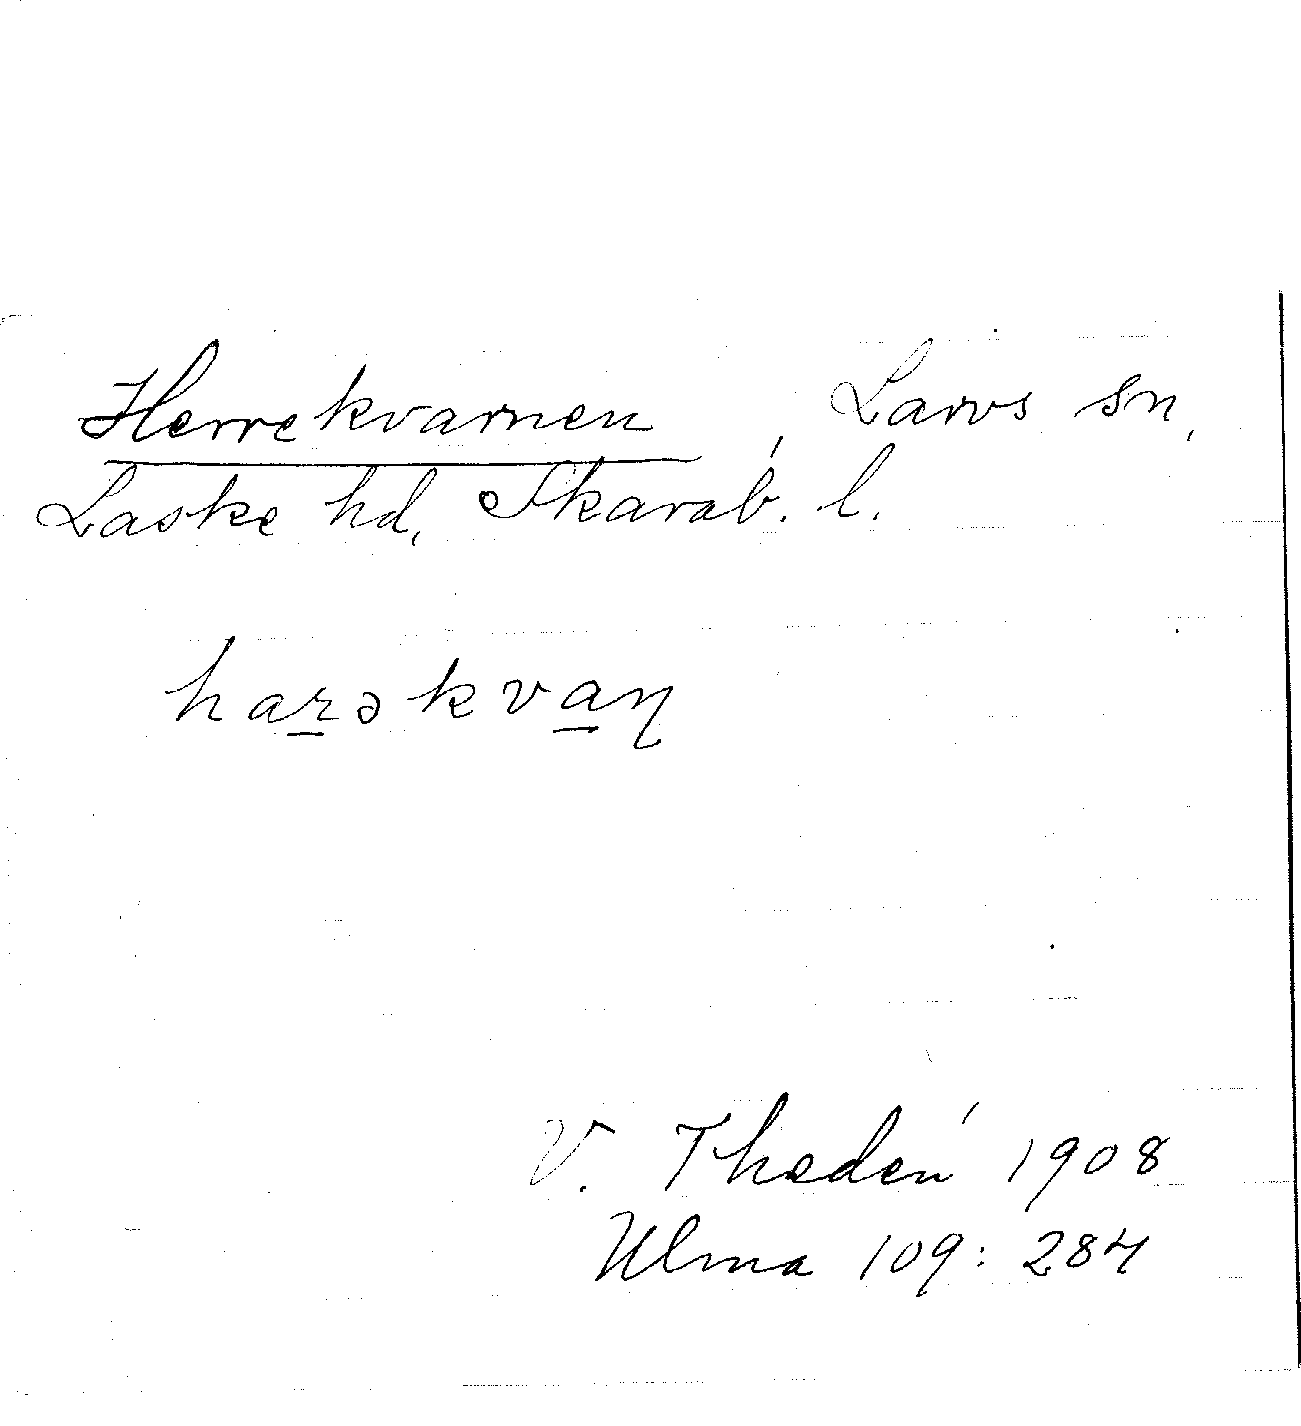 Herrekvarnen, Larvs sn,
Laske hd, Skarab. l.
harəkvaɳ
V. Thedén 1908
Ulma 109:284